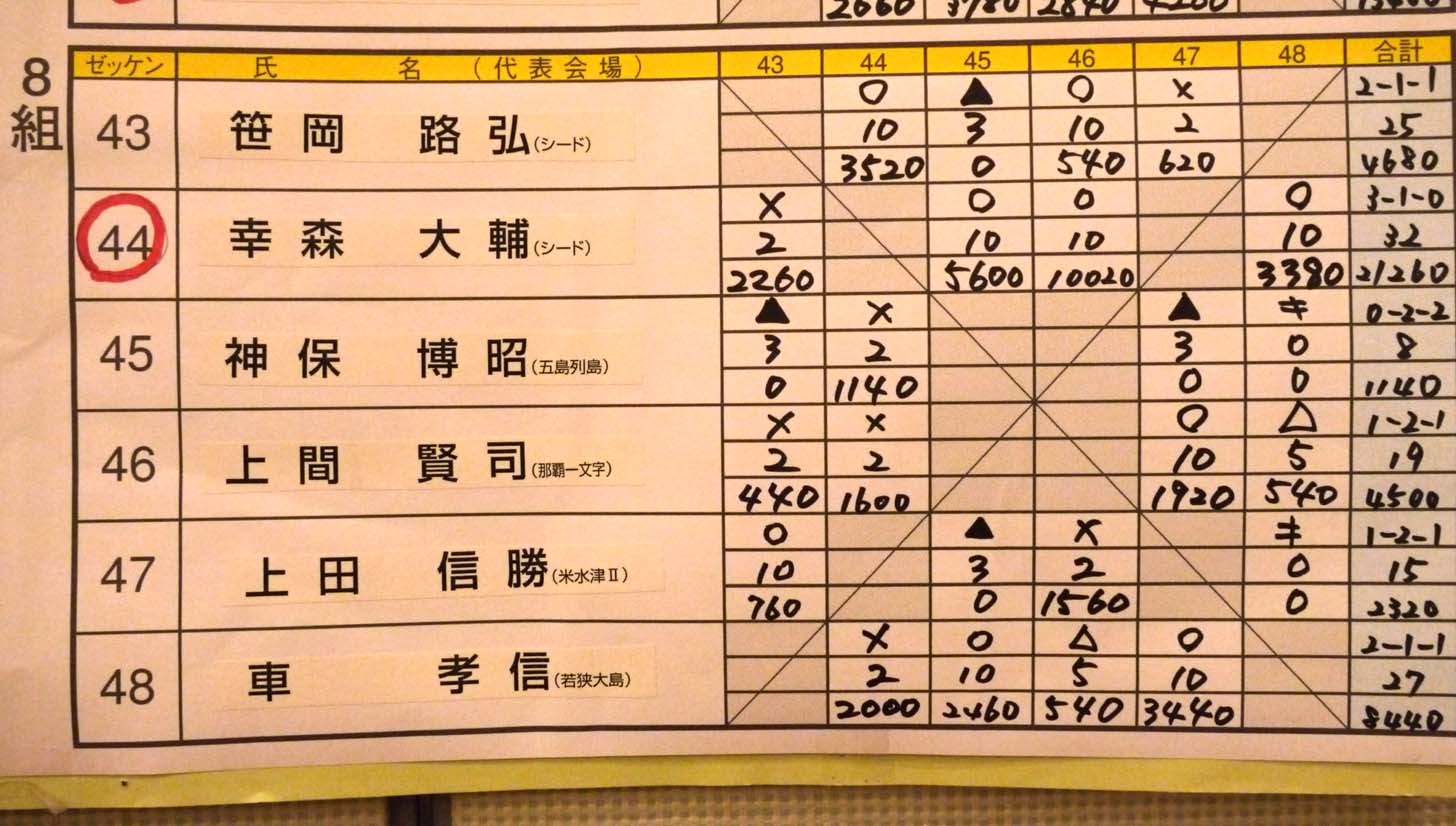 2660 3780 2840 4200
8組
ゼッケン 氏 名 (代表会場) 43 44 45 46 47 48 合計
○ ▲ ○ × 2-1-1
43 笹岡 路弘(シード) 10 3 10 2 25
3520 0 540 620 4680
× ○ ○ ○ 3-1-0
44 幸森 大輔(シード) 2 10 10 10 32
2260 5600 10020 3380 21260
▲ × ▲ キ 0-2-2
45 神保 博昭(五島列島) 3 2 3 0 8
0 1140 0 0 1140
× × ○ △ 1-2-1
46 上間 賢司(那覇一文字) 2 2 10 5 19
440 1600 1920 540 4500
○ ▲ × キ 1-2-1
47 上田 信勝(米水津Ⅱ) 10 3 2 0 15
760 0 1560 0 2320
× ○ △ ○ 2-1-1
48 車 孝信(若狭大島) 2 10 5 10 27
2000 2460 540 3440 8440